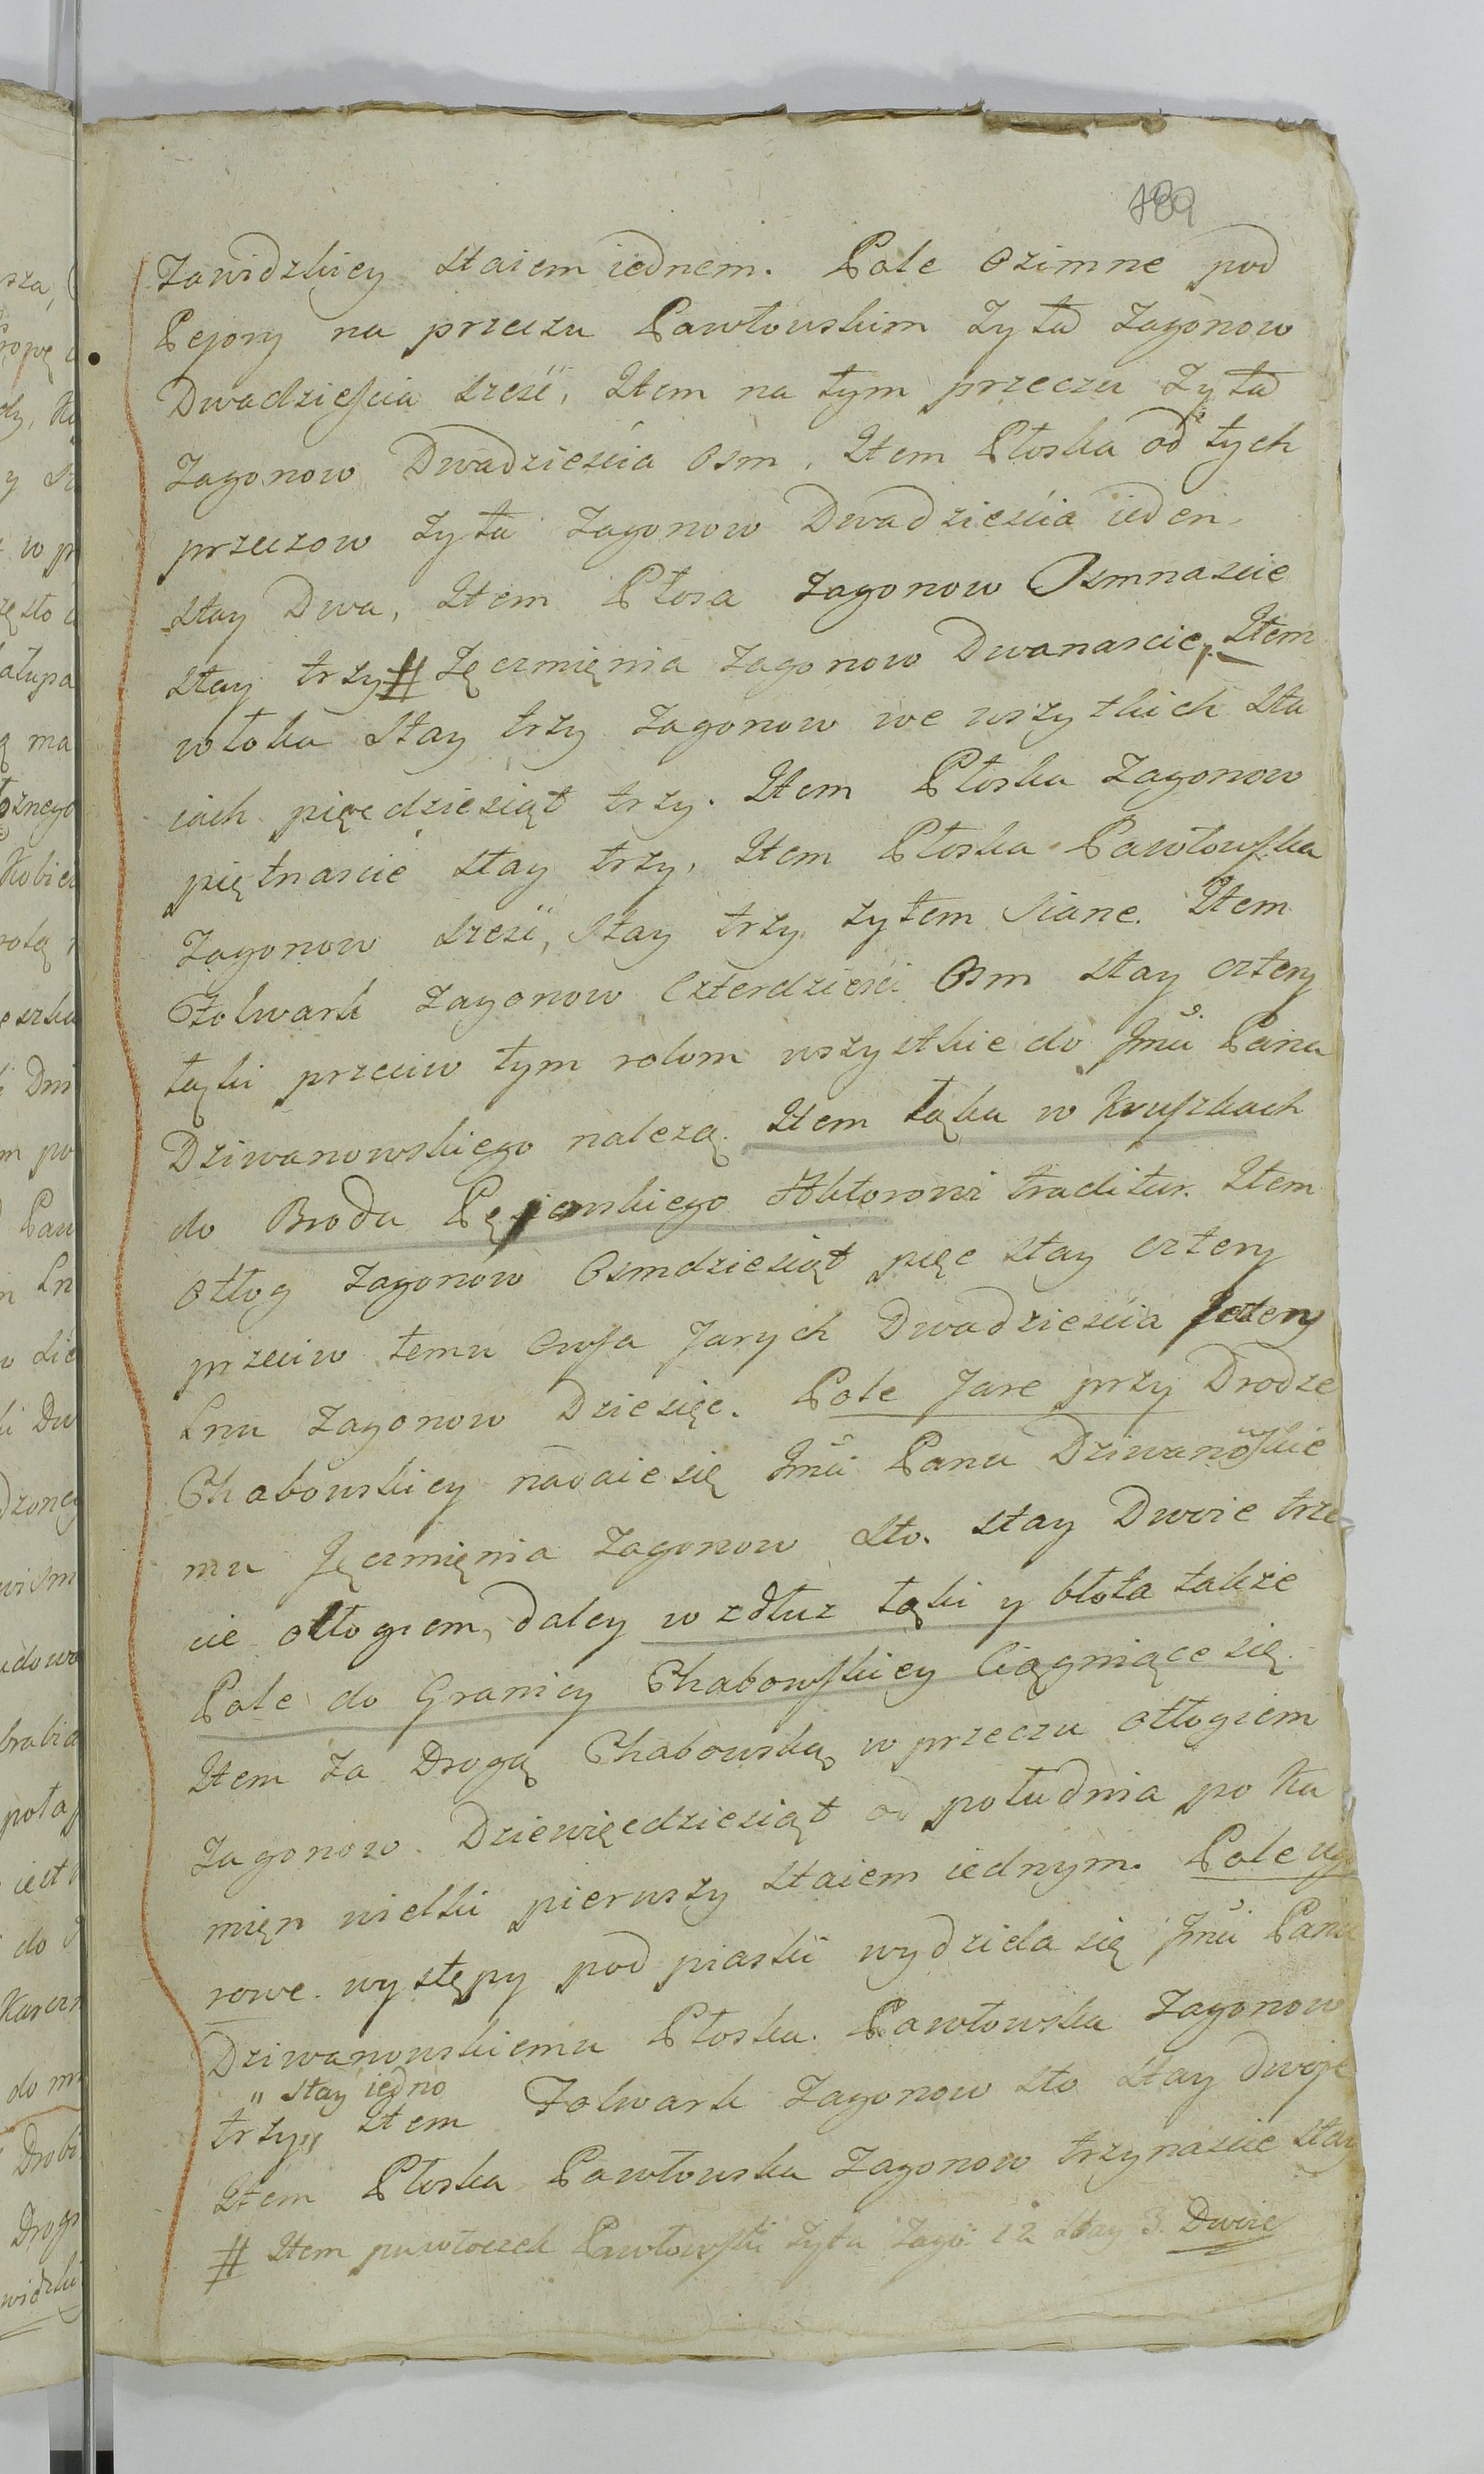 189
Zawidzkiey staiem iednem. Pole Ozimne pod
Pejory na przeczu Pawłowskim Zyta Zagonow
Dwadzieścia sześć, Item na tym przeczu Zyta
Zagonow Dwadzieścia Osm, Item Płoska od tych
przeczow Zyta Zagonow Dwadzieścia ieden,
stay Dwa, Item Płosa Zagonow Osmnaście
stay trzy # Jęczmięnia Zagonow Dwanaście, Item
włoka stay trzy Zagonow we wszytkich sta
iach pięcdziesiąt trzy. Item Płoska Zagonow
piętnaście stay trzy, Item Płoska Pawłowska
Zagonow sześć, stay trzy zytem siane. Item
Folwark Zagonow Czterdzieści Osm stay cztery
łąki przeciw tym rolom wszystkie do Jmći Pana
Dziwanowskiego nalezą. Item łąka w Kruszkach
do Brodu Aktorowi traditur. Item
Otłog Zagonow Osmdziesiąt pięc stay cztery
przeciw temu Owsa Jarych Dwadzieścia cztery
Lnu Zagonow Dziesięc. Pole Jare przy Drodze
Chabowskiey nadaie się Jmći Panu Dziwanowskie
mu Jęczmięnia Zagonow sto. stay Dwoie trze
cie otłogiem, daley wzdłuz łąki y błota takze
Pole do Granicy Chabowskiey Ciągniące się.
Item Za Drogą Chabowską w przeczu otłogiem
Zagonow Dziewięcdziesiąt od południa po Ka
mięn wielki pierwszy staiem iednym. Pole
rowe. występy pod piaski wydziela się Jmći Panu
Dziwanowskiemu Płoska Pawłowska Zagonow
" stay iedno
trzy, Item Folwark Zagonow sto stay dwoje
Item Płoska Pawłowska Zagonow trzynaście stay
# Item Pawłowski Zyta Zago: 12 stay 3. Dwoie